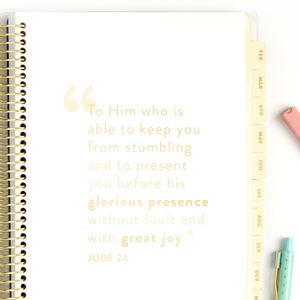 “To Him who is
able to keep you
from stumbling
and to present
you before his
glorious presence
without fault and
with great joy ”
JUDE 24
FEB
MAR
APR
MAY
JUN
JUL
AUG
SEP
OCT